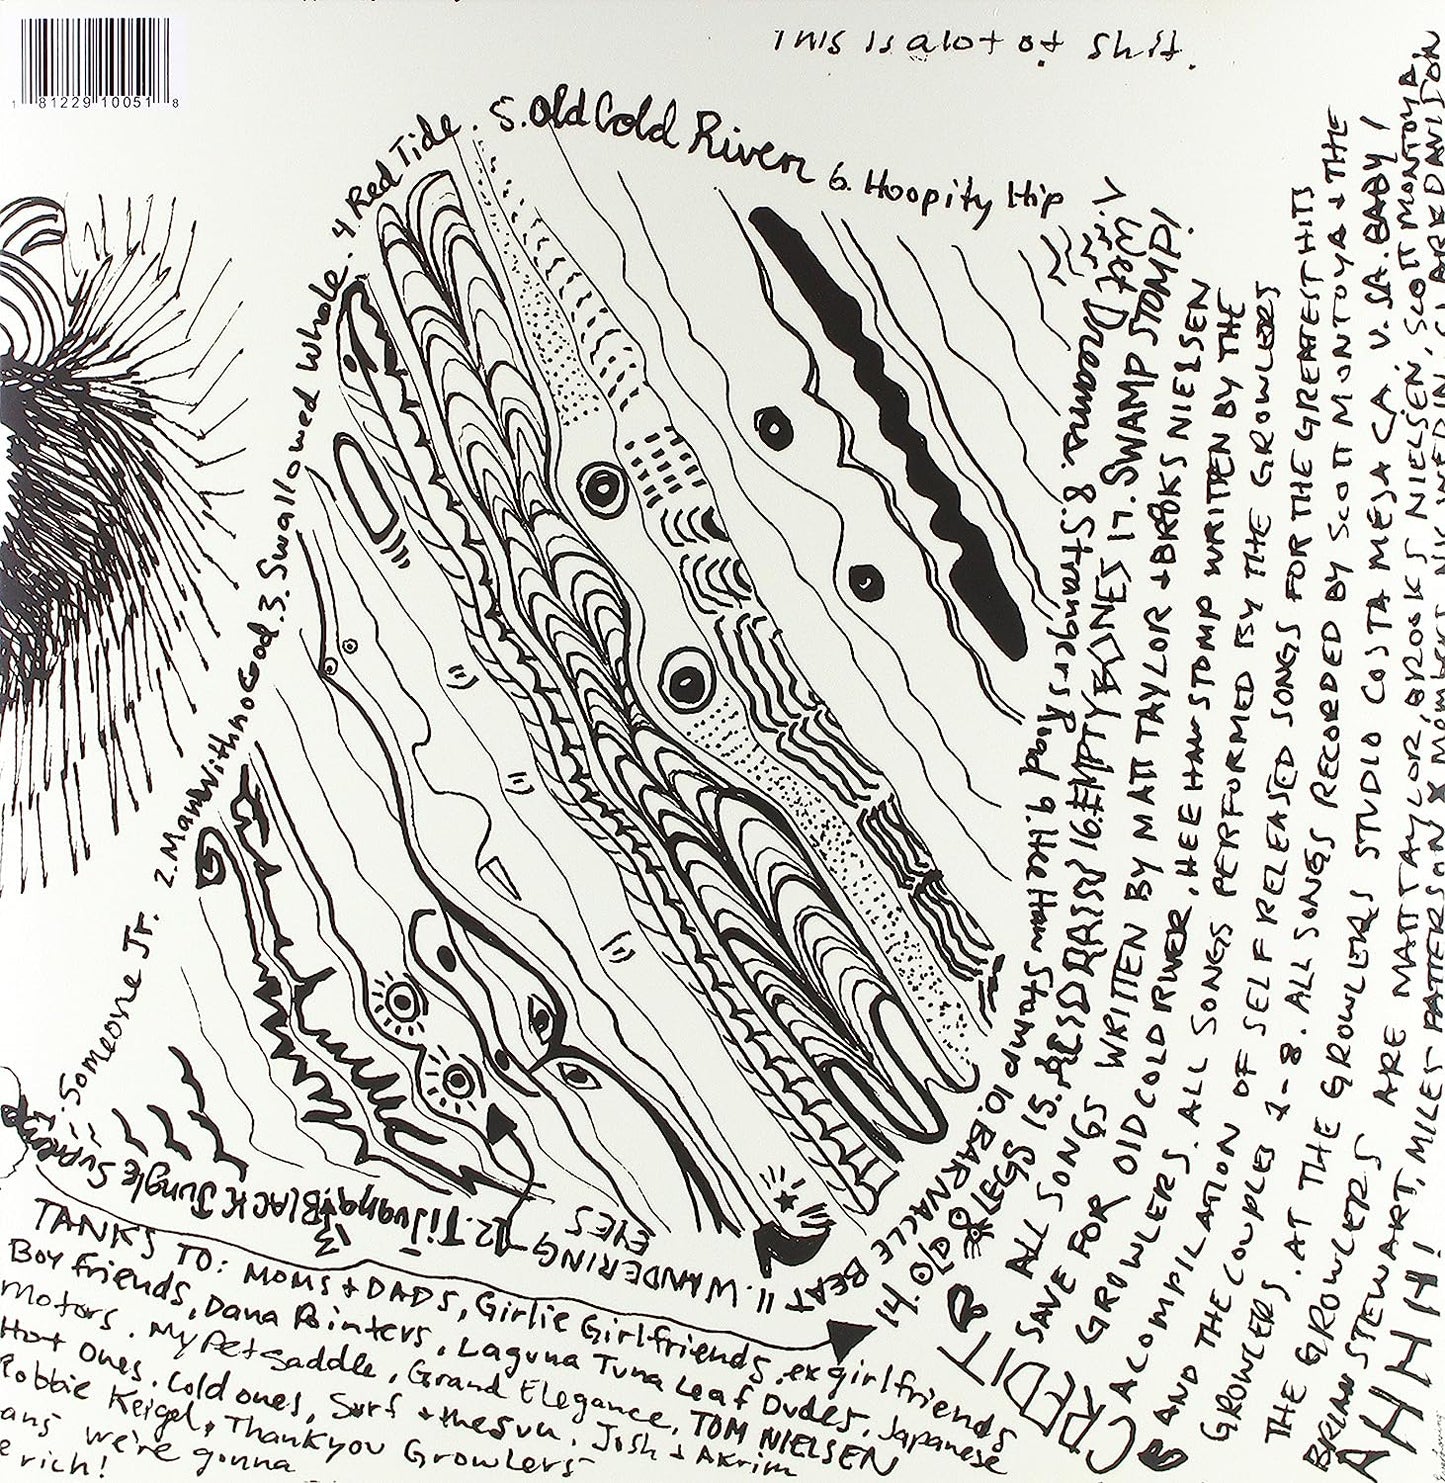 1 81229 10051 8
This is alot of shit.
1. Someone Jr.
2. Man With no God. 3. Swallowed Whole. 4 Red Tide. 5. Old Cold River 6. Hoopity Hip
7. Wet Dreams. 8. Strangers Road 9. Hee Haw Stomp 10. BARNACLE BEAT
11. WANDERING EYES
12. Tijuana
13. BLACK Jungle Supreme
14. OLD
LEGS 15. ACID RAIN 16. EMPTY BONES 17. SWAMP STOMP!
CREDIT
ALL SONGS WRITTEN BY MATT TAYLOR + BROOKS NIELSEN
SAVE FOR OLD COLD RIVER, HEE HAW STOMP WRITTEN BY THE
GROWLERS. ALL SONGS PERFORMED BY THE GROWLERS
A COMPILATION OF SELF RELEASED SONGS FOR THE GREATEST HITS
AND THE COUPLES 1-8. ALL SONGS RECORDED BY SCOTT MONTOYA + THE
GROWLERS. AT THE GROWLERS STUDIO COSTA MESA CA. U.SA. BABY!
THE GROWLERS ARE MATT TAYLOR, BROOKS NIELSEN, SCOTT MONTOYA,
BRIAN STEWART, MILES PATTERSON X
AHHHH!
TANKS TO: MOMS + DADS, Girlie Girlfriends, exgirlfriends
Boy friends, Dana Pointers, Laguna Tuna Leaf Dudes, Japanese
Motors. My Pet Saddle, Grand Elegance, TOM NIELSEN
Hot Ones. Cold ones, Surf + the Sun. Josh + Akrim
Robbie Keigel, Thankyou Growlers
ans we're gonna
e rich!